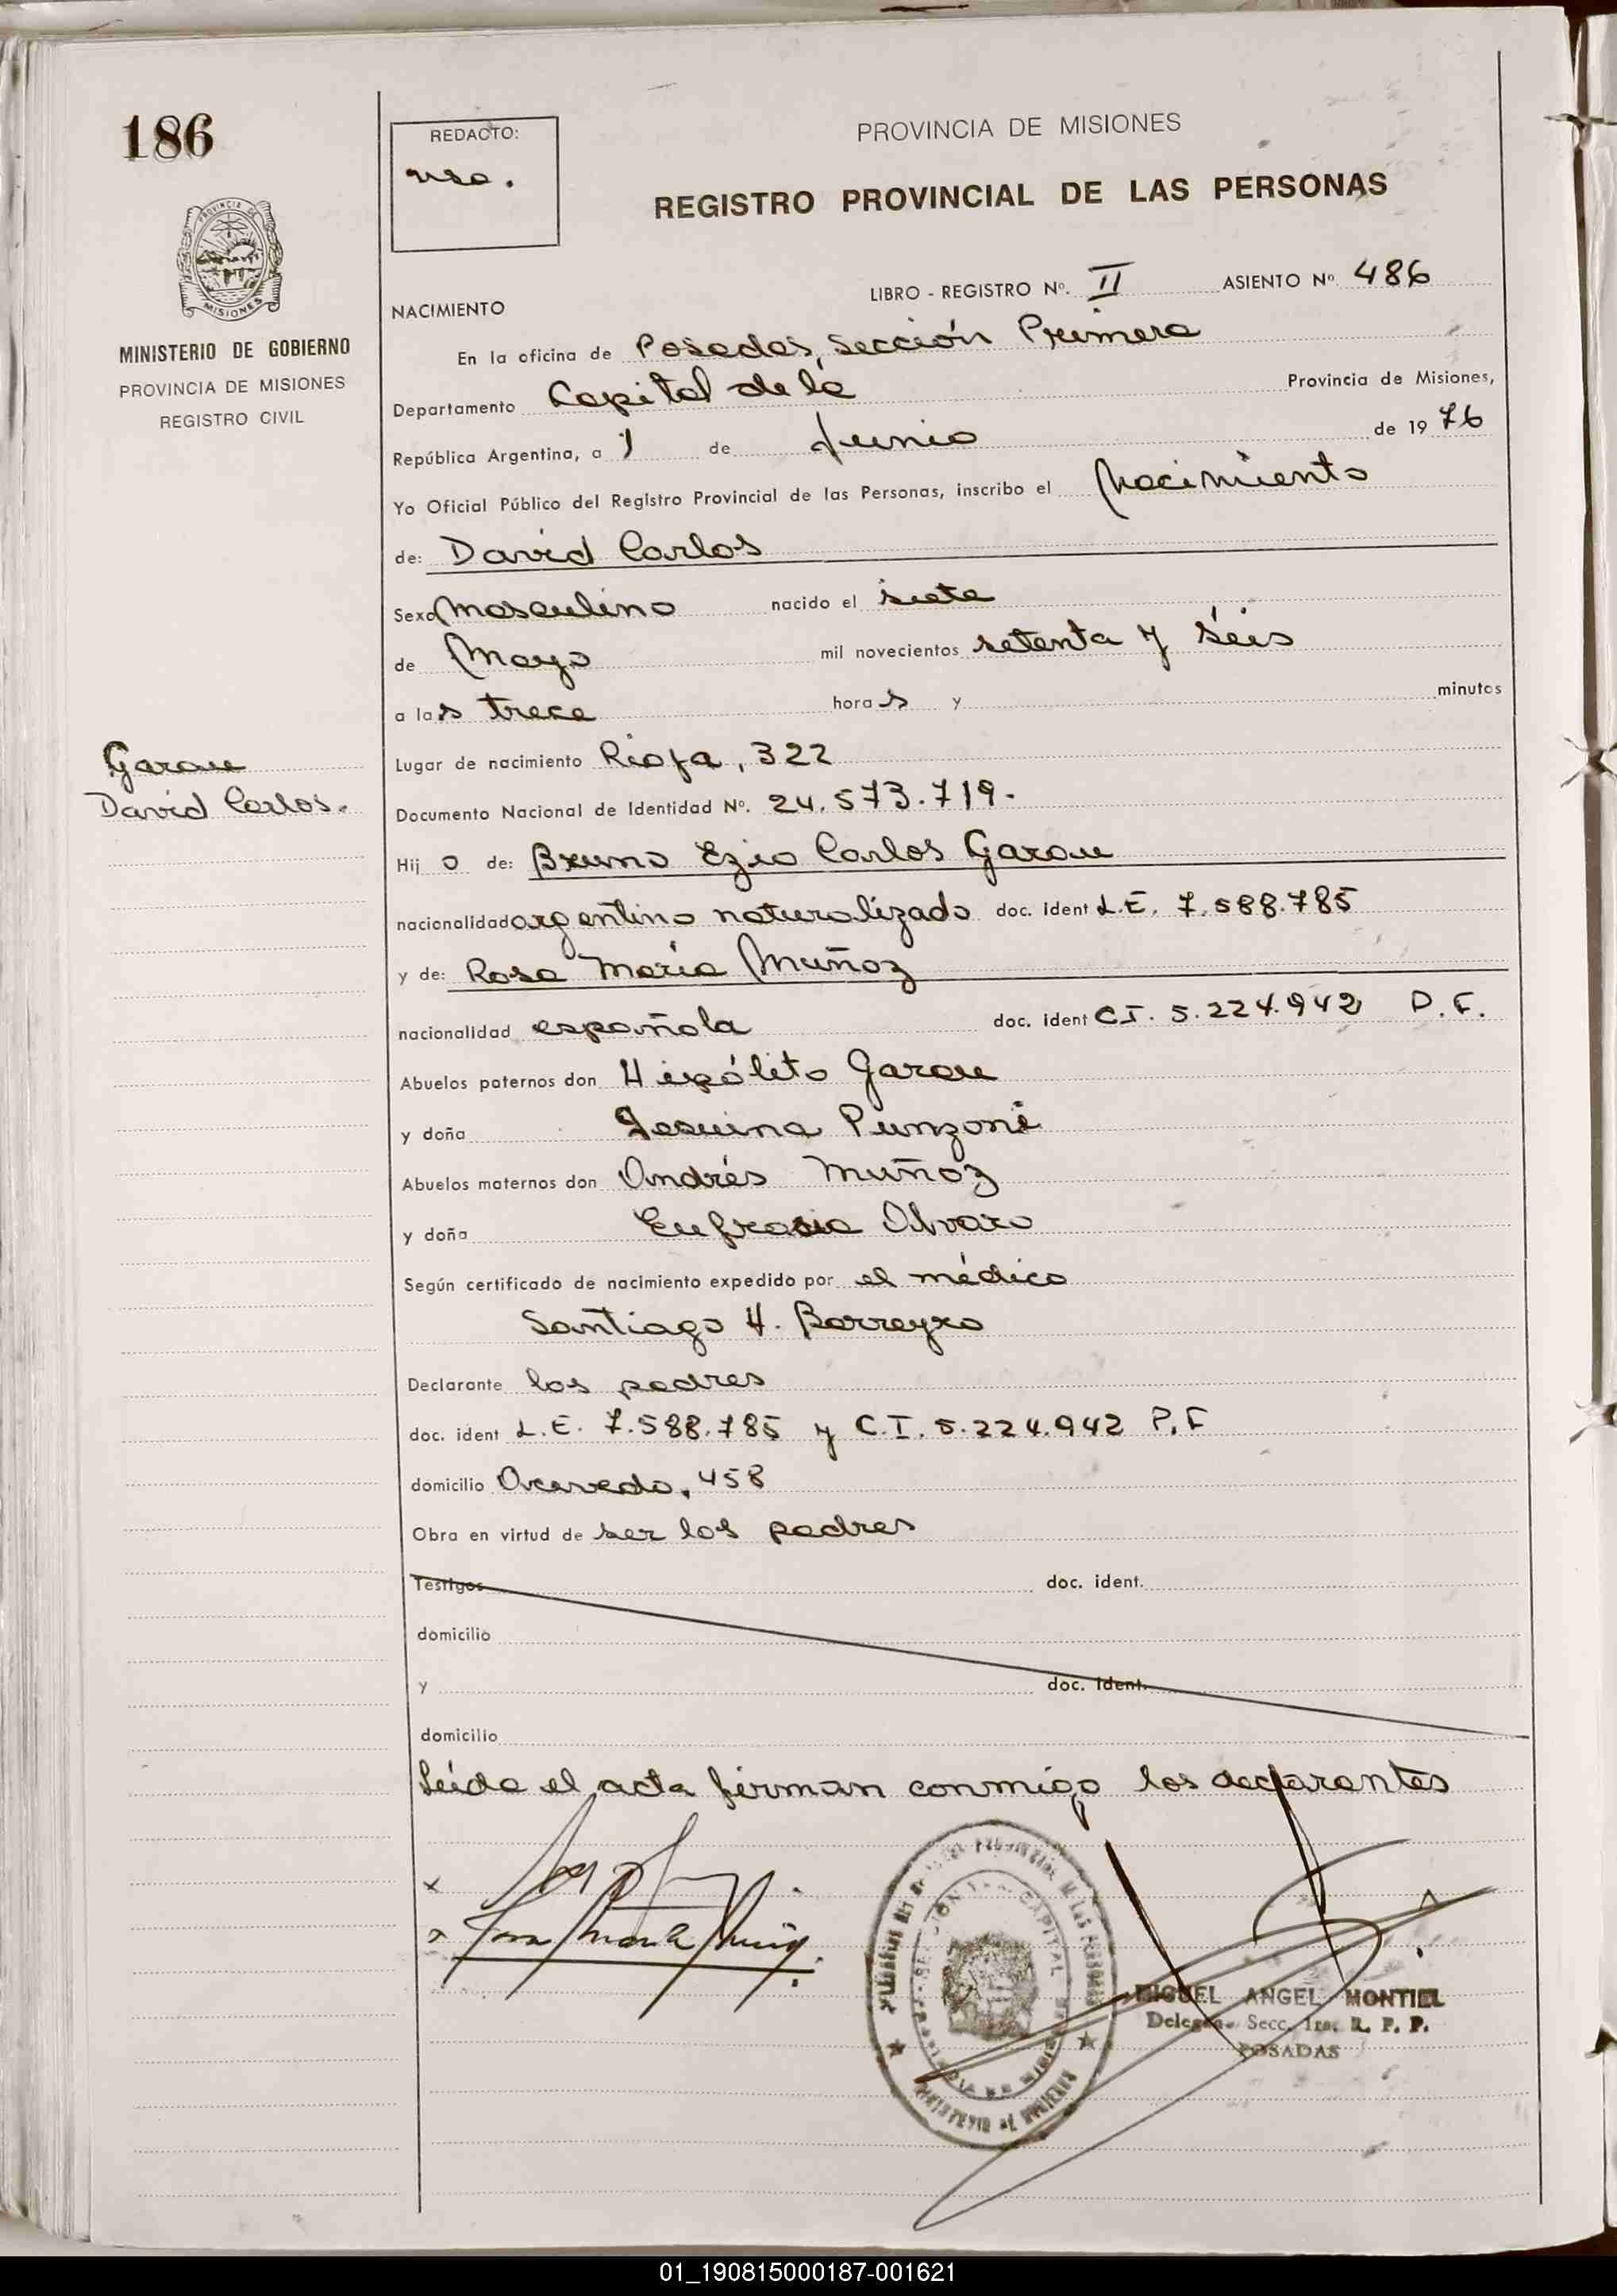 186
REDACTO:
PROVINCIA DE MISIONES
REGISTRO PROVINCIAL DE LAS PERSONAS
MISIONES
MINISTERIO DE GOBIERNO
PROVINCIA DE MISIONES
REGISTRO CIVIL
LIBRO - REGISTRO Nº. II ASIENTO Nº. 486
NACIMIENTO
En la oficina de Posadas, sección Primera
Departamento Capital de la Provincia de Misiones,
República Argentina, a 1 de Junio de 1976
Yo Oficial Público del Registro Provincial de las Personas, inscribo el Nacimiento
de: David Carlos
Sexo Masculino nacido el siete
de Mayo mil novecientos setenta y séis
a las trece horas y minutos
Lugar de nacimiento Rioja, 322
Garau
David Carlos.
Documento Nacional de Identidad Nº. 24.573.719.-
Hijo de: Bruno Ezio Carlos Garau
nacionalidad argentino naturalizado doc. ident L.E. 7.588.785
y de: Rosa María Muñoz
nacionalidad española doc. ident C.I. 5.224.942 P.F.
Abuelos paternos don Hipólito Garau
y doña Gesuina Punzoni
Abuelos maternos don Andrés Muñoz
y doña Eufrasia Alvaro
Según certificado de nacimiento expedido por el médico
Santiago H. Barreyro
Declarante los padres
doc. ident L.E. 7.588.785 y C.I. 5.224.942 P.F
domicilio Acevedo, 458
Obra en virtud de ser los padres
Testigos doc. ident.
domicilio
y doc. ident.
domicilio
Leída el acta firman conmigo los declarantes
MIGUEL ANGEL MONTIEL
Delegado Secc. 1ra. R. P. P.
POSADAS
01_190815000187-001621